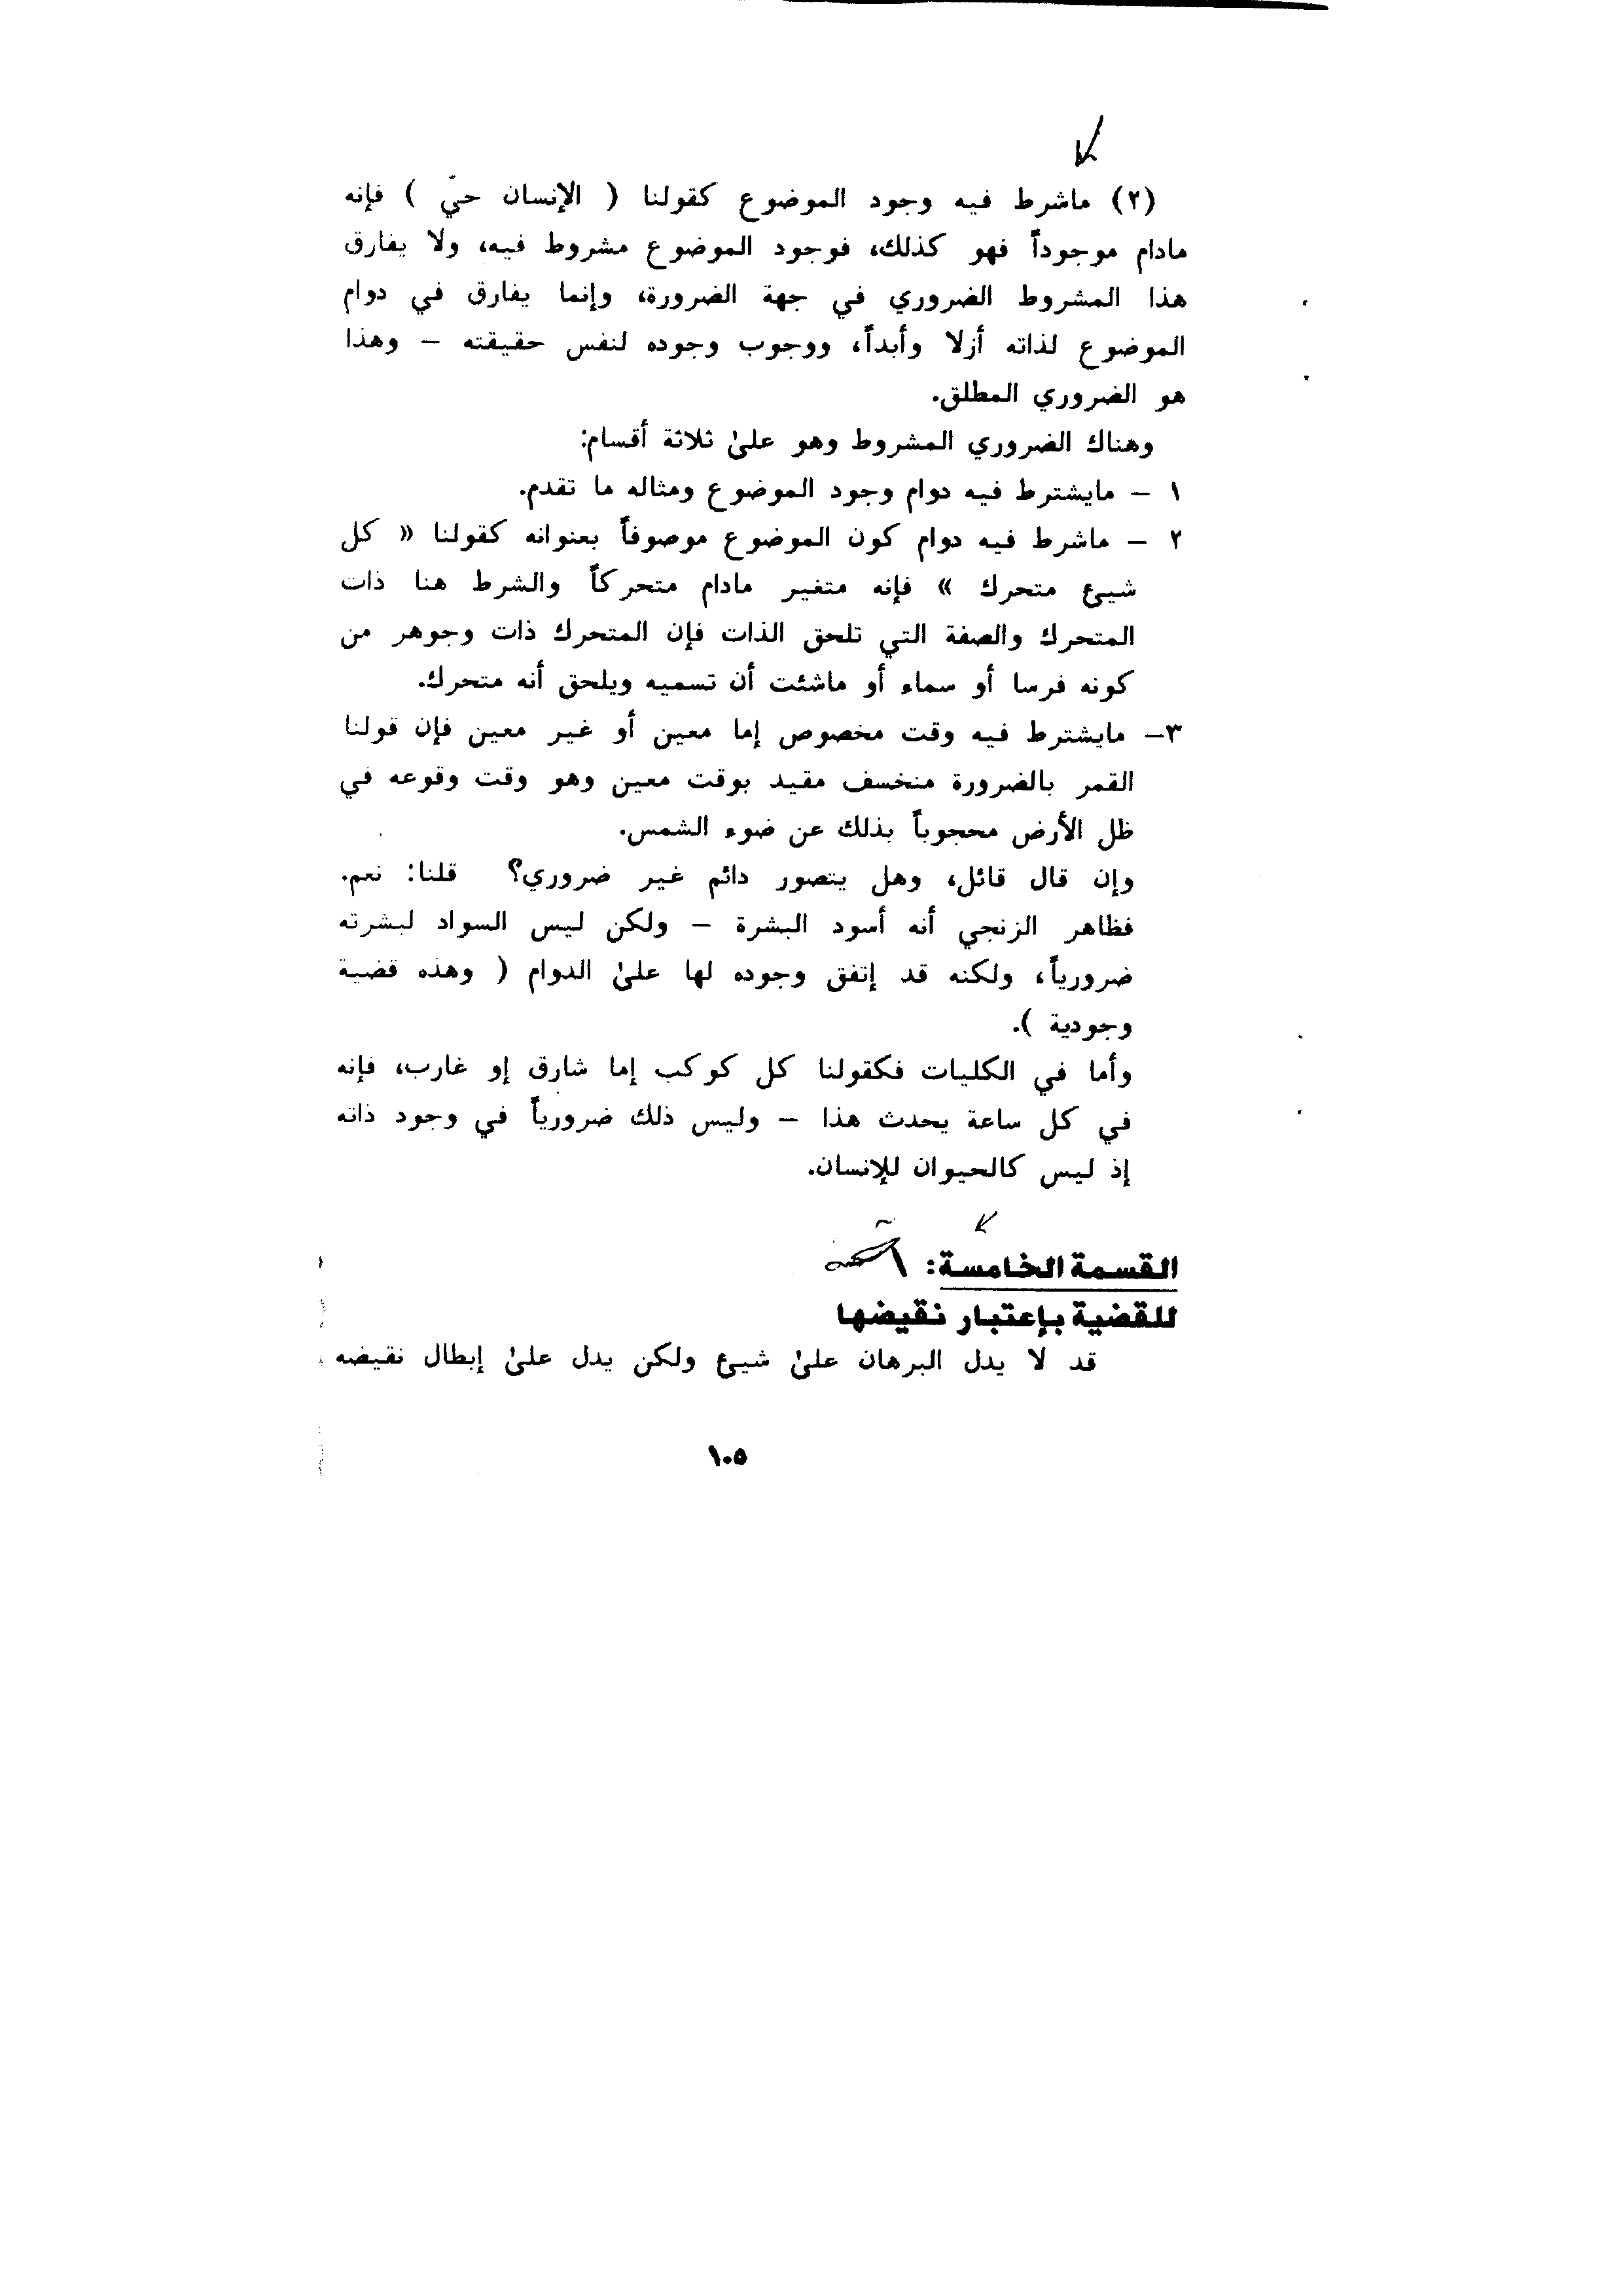 (٢) ماشرط فيه وجود الموضوع كقولنا ( الإنسان حيّ ) فإنه
مادام موجوداً فهو كذلك، فوجود الموضوع مشروط فيه، ولا يفارق
هذا المشروط الضروري في جهة الضرورة، وإنما يفارق في دوام
الموضوع لذاته أزلا وأبداً، ووجوب وجوده لنفس حقيقته – وهذا
هو الضروري المطلق.
وهناك الضروري المشروط وهو علىٰ ثلاثة أقسام:
١ – مايشترط فيه دوام وجود الموضوع ومثاله ما تقدم.
٢ – ماشرط فيه دوام كون الموضوع موصوفاً بعنوانه كقولنا « كل
شيئ متحرك » فإنه متغير مادام متحركاً والشرط هنا ذات
المتحرك والصفة التي تلحق الذات فإن المتحرك ذات وجوهر من
كونه فرسا أو سماء أو ماشئت أن تسميه ويلحق أنه متحرك.
٣– مايشترط فيه وقت مخصوص إما معين أو غير معين فإن قولنا
القمر بالضرورة منخسف مقيد بوقت معين وهو وقت وقوعه في
ظل الأرض محجوباً بذلك عن ضوء الشمس.
وإن قال قائل، وهل يتصور دائم غير ضروري؟ قلنا: نعم.
فظاهر الزنجي أنه أسود البشرة – ولكن ليس السواد لبشرته
ضرورياً، ولكنه قد إتفق وجوده لها علىٰ الدوام ( وهذه قضية
وجودية ).
وأما في الكليات فكقولنا كل كوكب إما شارق إو غارب، فإنه
في كل ساعة يحدث هذا – وليس ذلك ضرورياً في وجود ذاته
إذ ليس كالحيوان للإنسان.
القسمة الخامسة:
للقضية بإعتبار نقيضها
قد لا يدل البرهان علىٰ شيئ ولكن يدل علىٰ إبطال نقيضه
١٠٥